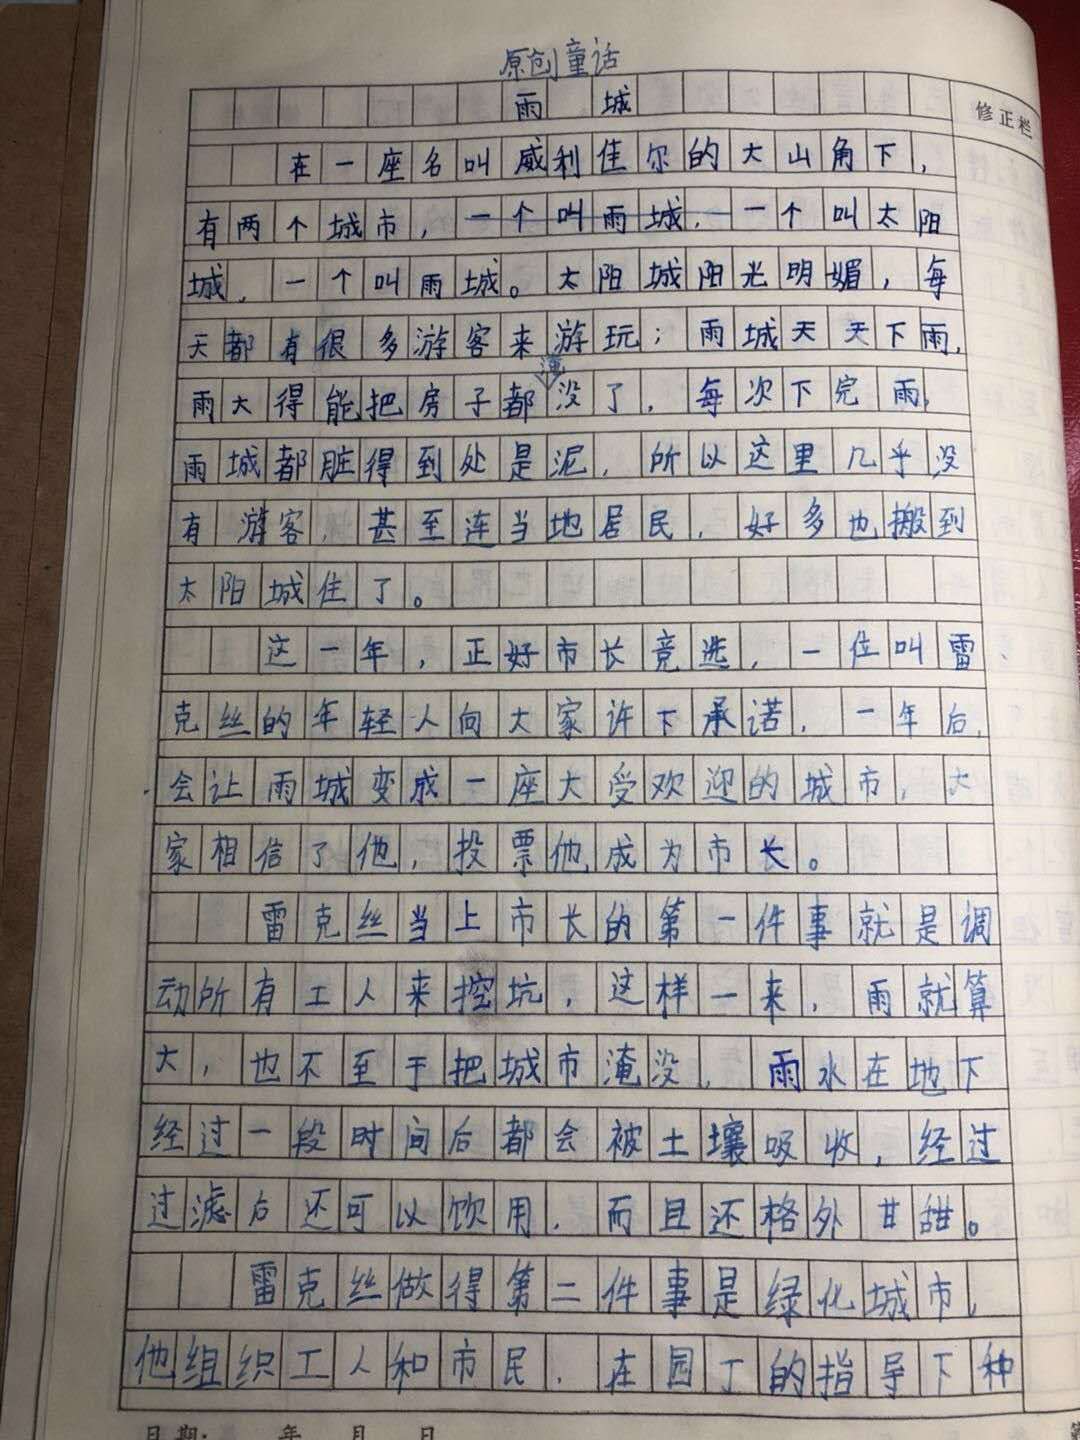 原创童话
雨 城
修正栏
在一座名叫威利佳尔的大山角下，
有两个城市，一个叫雨城，一个叫太阳
城，一个叫雨城。太阳城阳光明媚，每
天都有很多游客来游玩；雨城天天下雨，
雨大得能把房子都淹没了，每次下完雨，
雨城都脏得到处是泥，所以这里几乎没
有游客，甚至连当地居民，好多也搬到
太阳城住了。
这一年，正好市长竞选，一位叫雷
克丝的年轻人向大家许下承诺，一年后，
会让雨城变成一座大受欢迎的城市，大
家相信了他，投票他成为市长。
雷克丝当上市长的第一件事就是调
动所有工人来挖坑，这样一来，雨就算
大，也不至于把城市淹没，雨水在地下
经过一段时间后都会被土壤吸收，经过
过滤后还可以饮用，而且还格外甘甜。
雷克丝做得第二件事是绿化城市，
他组织工人和市民，在园丁的指导下种
日期： 年 月 日